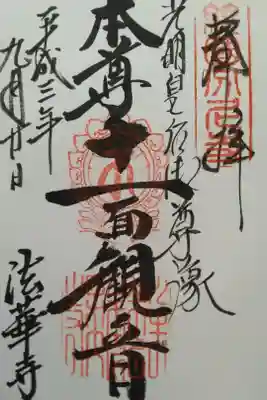 奉拝
光明皇后御尊像
本尊十一面観音
平成三年
九月廿日
法華寺